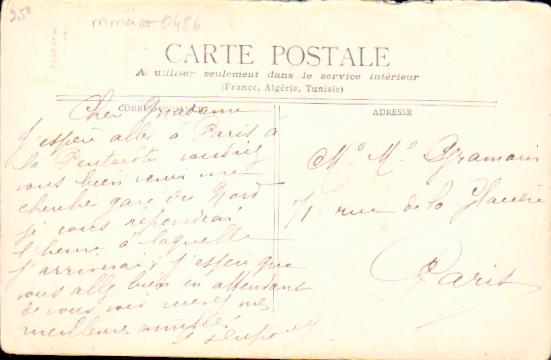 2,50
monaco 0486
CARTE POSTALE
A utiliser seulement dans le service intérieur
(France, Algérie, Tunisie)
CORRESPONDANCE
ADRESSE
Cher Madame
J'espère aller à Paris à
la Pentecôte voudriez
vous bien venir me
chercher gare du Nord
je vous repondrai
l'heure à laquelle
j'arriverai, j'espère que
vous allez bien en attendant
de vous voir recevez mes
meilleurs amitiés
Me Me Gramain
71 rue de la Glacière
Paris